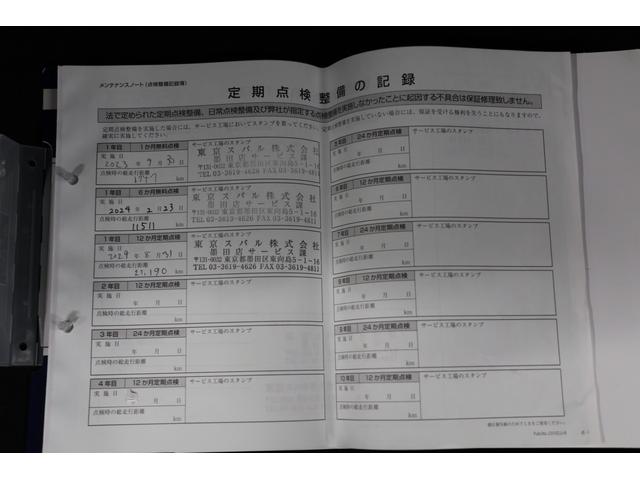 メンテナンスノート(点検整備記録簿)
定期点検整備の記録
法で定められた定期点検整備、日常点検整備及び弊社が指定する点検整備を実施しなかったことに起因する不具合は保証修理致しません。
定期点検整備を実施した場合には、サービス工場においてスタンプを貰ってください。
確実に実施してください。
していない場合には、保証を受ける権利を失うことにもなりますので、
1年目 1か月無料点検 サービス工場のスタンプ
実施日
2023年9月
点検時の総走行距離
km
東京スバル株式会社
墨田店サービス課
〒131-0032 東京都墨田区東向島5-1-16
TEL 03-3619-4626 FAX 03-3619-4811
1年目 6か月無料点検 サービス工場のスタンプ
実施日
2024年2月23日
点検時の総走行距離
11511 km
東京スバル株式会社
墨田店サービス課
〒131-0032 東京都墨田区東向島5-1-16
TEL 03-3619-4626 FAX 03-3619-4811
1年目 12か月定期点検 サービス工場のスタンプ
実施日
2024年8月31日
点検時の総走行距離
21,190 km
東京スバル株式会社
墨田店サービス課
〒131-0032 東京都墨田区東向島5-1-16
TEL 03-3619-4626 FAX 03-3619-4811
2年目 12か月定期点検 サービス工場のスタンプ
実施日
年 月 日
点検時の総走行距離
km
3年目 24か月定期点検 サービス工場のスタンプ
実施日
年 月 日
点検時の総走行距離
km
4年目 12か月定期点検 サービス工場のスタンプ
実施日
年 月 日
点検時の総走行距離
km
24か月定期点検 サービス工場のスタンプ
実施日
年 月 日
点検時の総走行距離
km
12か月定期点検 サービス工場のスタンプ
実施日
年 月 日
点検時の総走行距離
km
7年目 24か月定期点検 サービス工場のスタンプ
実施日
年 月 日
点検時の総走行距離
km
12か月定期点検 サービス工場のスタンプ
実施日
年 月 日
点検時の総走行距離
km
9年目 24か月定期点検 サービス工場のスタンプ
実施日
年 月 日
点検時の総走行距離
km
10年目 12か月定期点検 サービス工場のスタンプ
実施日
年 月 日
点検時の総走行距離
km